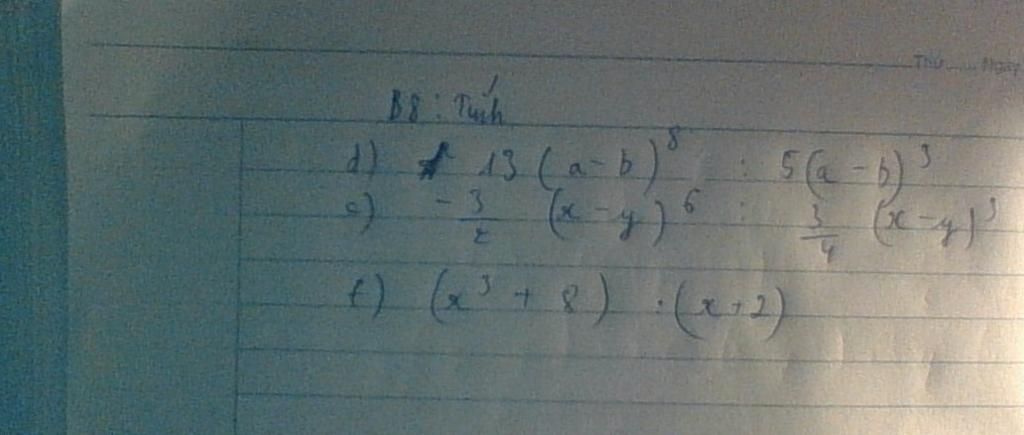 Thứ ...... Ngày
B8 : Tính
d) 13 (a - b)^8 : 5(a - b)^3
e) - 3/2 (x - y)^6 : 3/4 (x - y)^3
f) (x^3 + 8) : (x + 2)